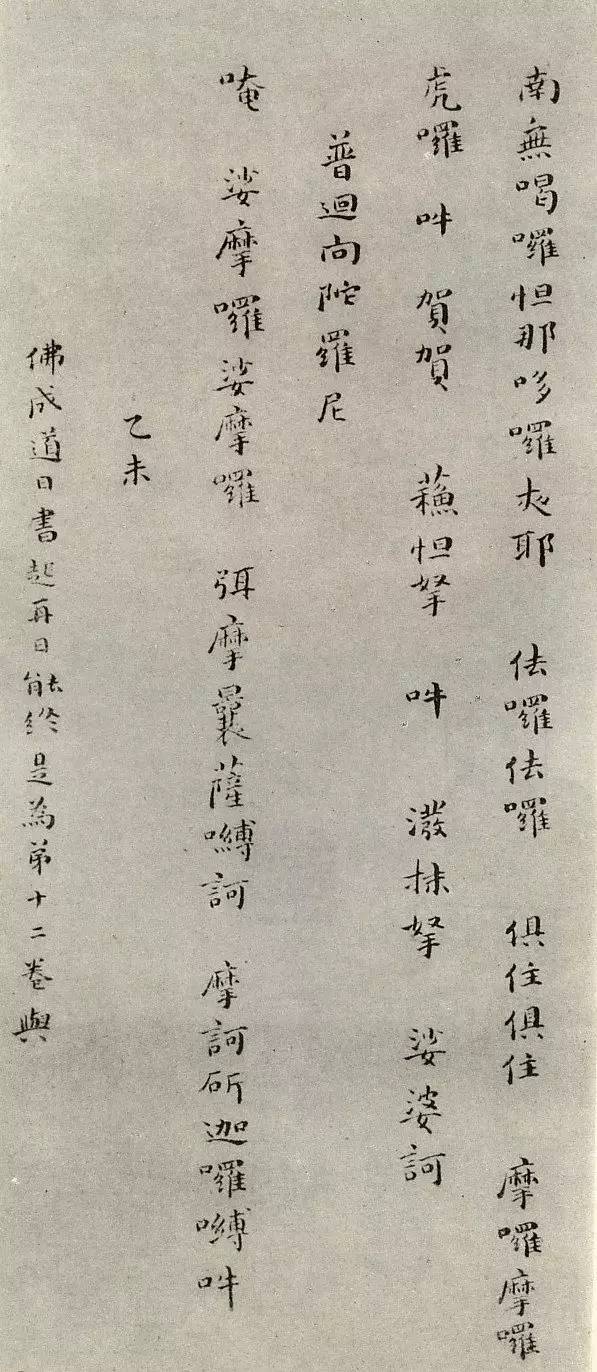 南無喝囉怛那哆囉夜耶 佉囉佉囉 俱住俱住 摩囉摩囉
虎囉 吽 賀賀 蘓怛拏 吽 潑抹拏 娑婆訶
普迴向陀羅尼
唵 娑摩囉娑摩囉 弭摩曩薩嚩訶 摩訶斫迦囉嚩吽
乙未
佛成道日書起再日能終是為第十二卷與